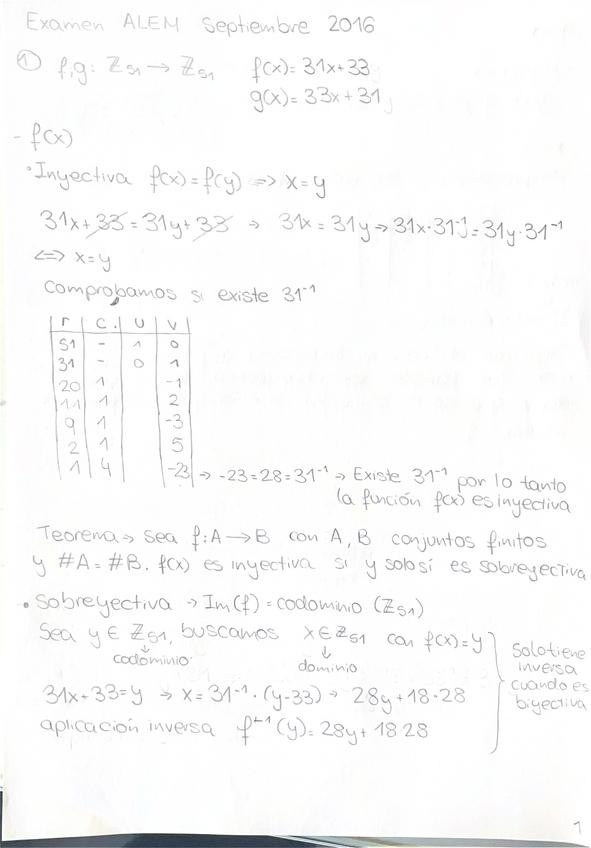 Examen ALEM Septiembre 2016
① f,g: ℤ51 → ℤ51 f(x)= 31x+33
g(x)= 33x+31
- f(x)
• Inyectiva f(x)=f(y) => x=y
31x+33=31y+33 → 31x=31y → 31x·31⁻¹=31y·31⁻¹
<=> x=y
Comprobamos si existe 31⁻¹
r | c. | u | v
51 | - | 1 | 0
31 | - | 0 | 1
20 | 1 | | -1
11 | 1 | | 2
9 | 1 | | -3
2 | 1 | | 5
1 | 4 | | -23 → -23=28=31⁻¹ → Existe 31⁻¹ por lo tanto
la función f(x) es inyectiva
Teorema → Sea f: A → B con A, B conjuntos finitos
y #A = #B. f(x) es inyectiva si y solo sí es sobreyectiva
• Sobreyectiva → Im(f) = codominio (ℤ51)
Sea y ∈ ℤ51, buscamos x ∈ ℤ51 con f(x)=y
↓ codominio ↓ dominio
31x+33=y → x=31⁻¹·(y-33) → 28y+18·28
aplicación inversa f⁻¹(y)=28y+18·28
Solo tiene
inversa
cuando es
biyectiva
1